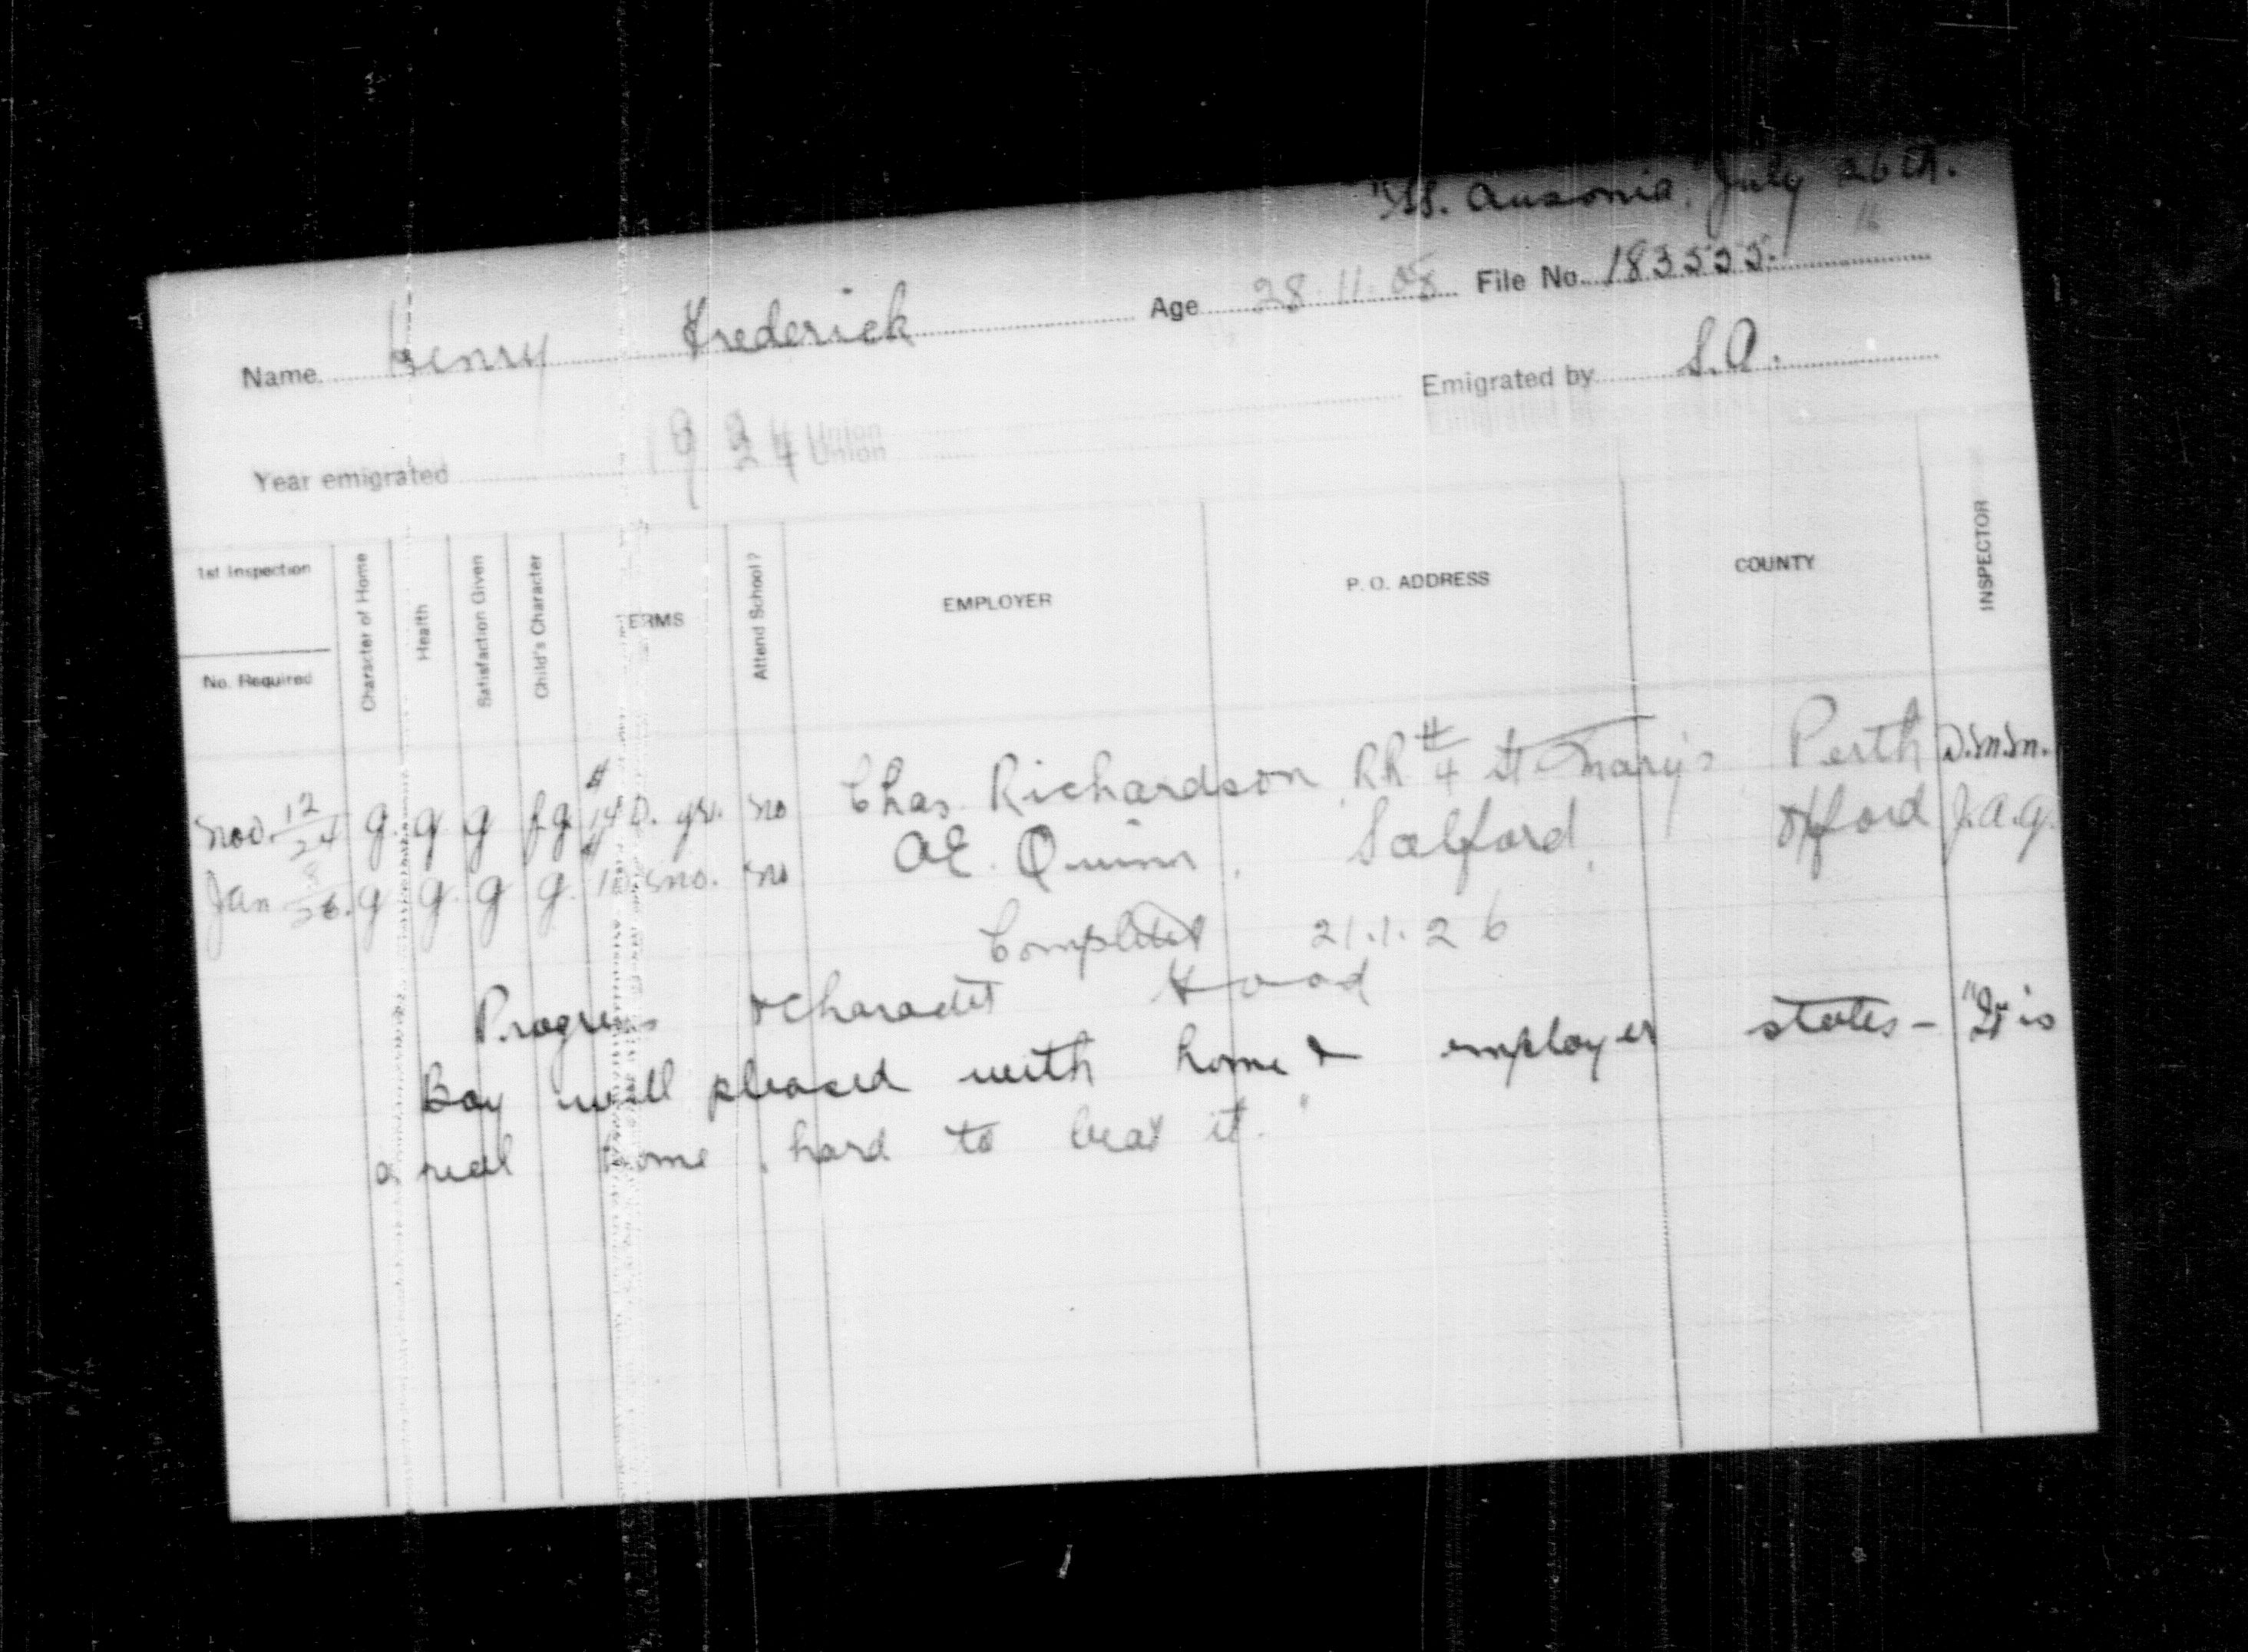 "SS. Ausonia, July 26th.
Name Henry Frederick Age 28.11.08 File No. 183555. 16
Year emigrated 1924 Union Emigrated by S.A.
1st Inspection
No. Required
Character of Home
Health
Satisfaction Given
Child's Character
TERMS
Attend School?
EMPLOYER
P. O. ADDRESS
COUNTY
INSPECTOR
Nov. 12/24 g. g g f.g. $140. yr. no Chas. Richardson, RR #4 St. Mary's Perth D.M.M.
Jan 26. g g. g g. $10 mo. no A E. Quinn, Salford, Oxford J.A.G.
Completed 21.1.26
Progress & Character Good
Boy well pleased with home & employer states - "It is
a real home, hard to beat it."